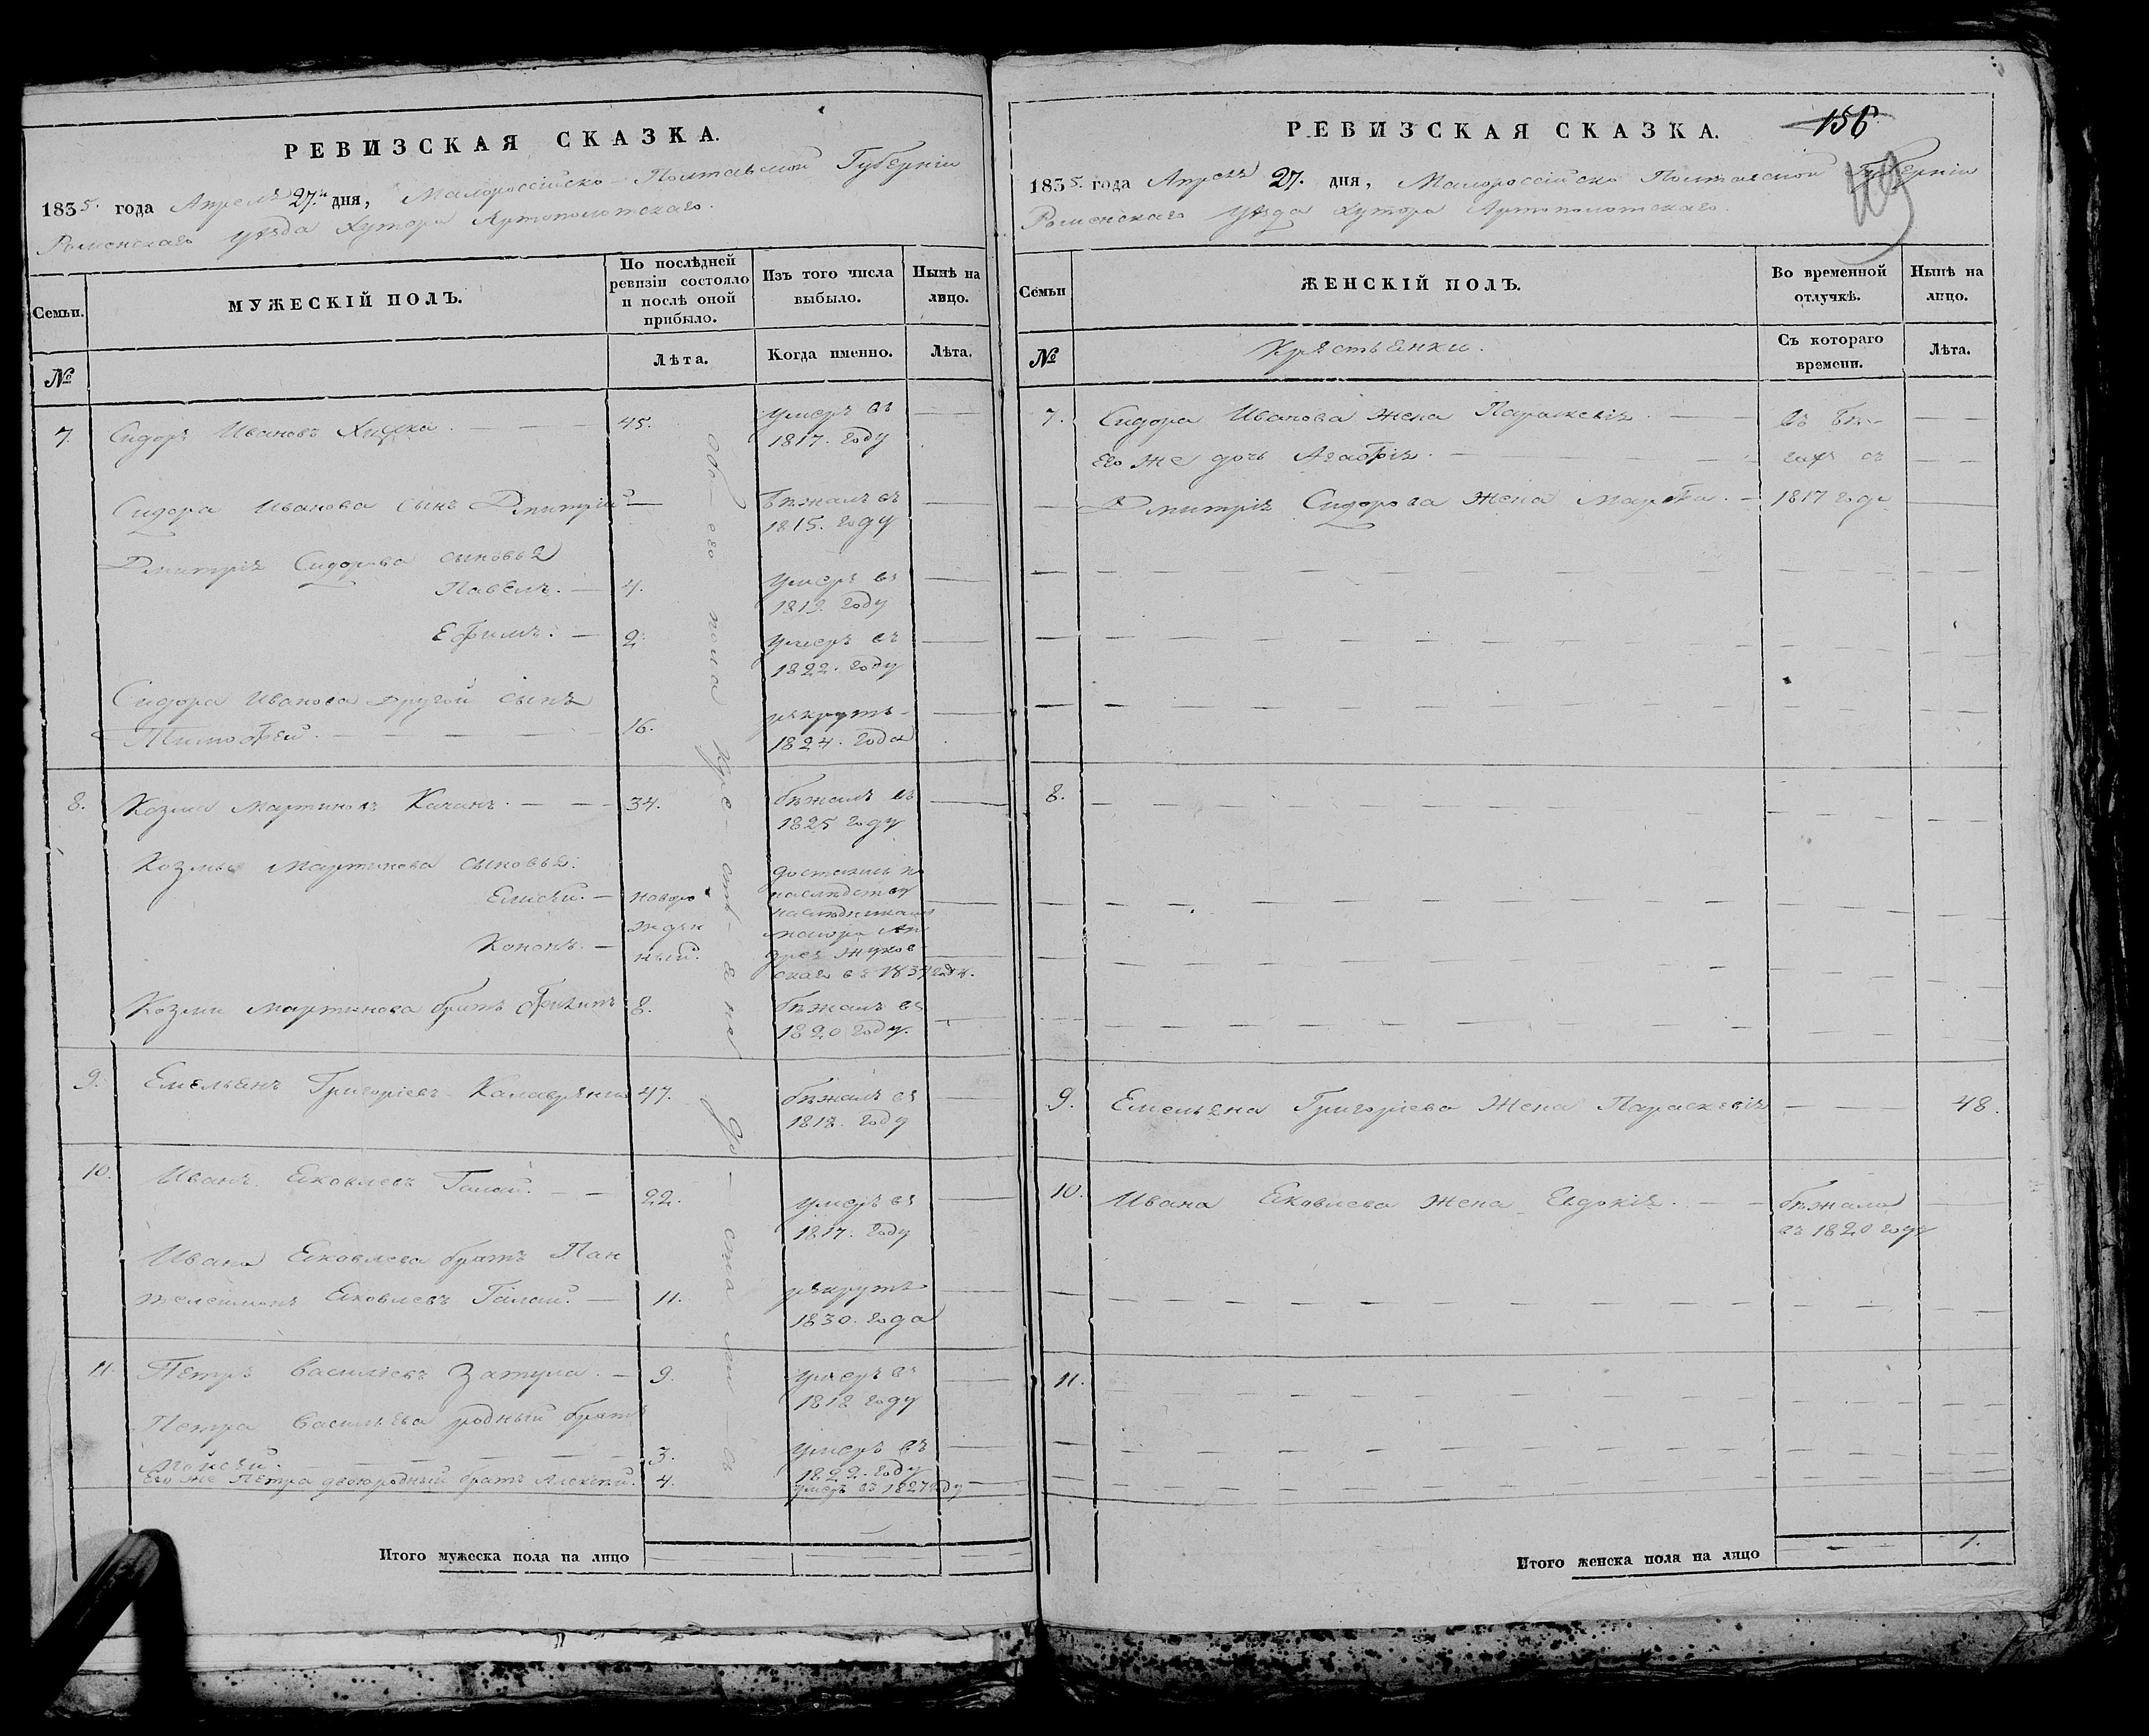 РЕВИЗСКАЯ СКАЗКА.
1835. года Апреля 27. дня, Малороссійско Полтавской Губерніи
Роменскаго уезда Хутора Артополотскаго.
Семьи.
МУЖЕСКІЙ ПОЛЪ.
По послѣдней ревизіи состояло и послѣ оной прибыло.
Изъ того числа выбыло.
Нынѣ на лицо.
№
Лѣта.
Когда именно.
Лѣта.
7. Сидоръ Ивановъ 45. умеръ въ
1817. году
Сидора Иванова сынъ Дмитрий — бѣжалъ въ
1815. году
Дмитрія Сидорова сыновья
Павелъ. 4. умеръ въ
году
Ефимъ. 2. умеръ въ
1822. году
Сидора Иванова другой сынъ
Тимофей. 16. рекрутъ
1824. года
8. Козма Мартиновъ Качанъ. 34. бѣжалъ въ
1825 году
Козмы Мартинова сыновья:
Елисѣй. новоро
Кононъ. жден
ный.
достались по
наслѣдству
наслѣдникамъ
маіора Ан
дрея Жуков
скаго въ
Козмы Мартинова братъ 8. бѣжалъ въ
1820 году.
9. Емельянъ Григоріевъ 47. бѣжалъ въ
году
10. Иванъ Яковлевъ Галай. 22. умеръ въ
1817. году
Ивана Яковлева братъ Пан
телеимонъ Яковлевъ Галай. 11. рекрутъ
1830. года
11. Петръ Васильевъ Затула. 9. умеръ въ
1818 году
Петра Васильева родный братъ
Мойсей. 3. умеръ въ
1822. году
Его же Петра двоюродный братъ Алексѣй. 4. умеръ въ 1827 году
Итого мужеска пола на лицо
РЕВИЗСКАЯ СКАЗКА.
156
1835. года Апреля 27. дня, Малороссійско Полтавской Губерніи
Роменскаго уезда Хутора Артополотскаго.
Семьи
ЖЕНСКІЙ ПОЛЪ.
Во временной отлучкѣ.
Нынѣ на лицо.
№
Крестьянки.
Съ котораго времени.
Лѣта.
7. Сидора Иванова жена Параскевія. въ бѣ-
Его же дочь Агафія. гахъ съ
Дмитрія Сидорова жена Марфа. 1817 года
8.
9. Емельяна Григоріева жена Параскевія 48.
10. Ивана Яковлева жена Евдокія. бѣжала
въ 1820 году
11.
Итого женска пола на лицо 1.